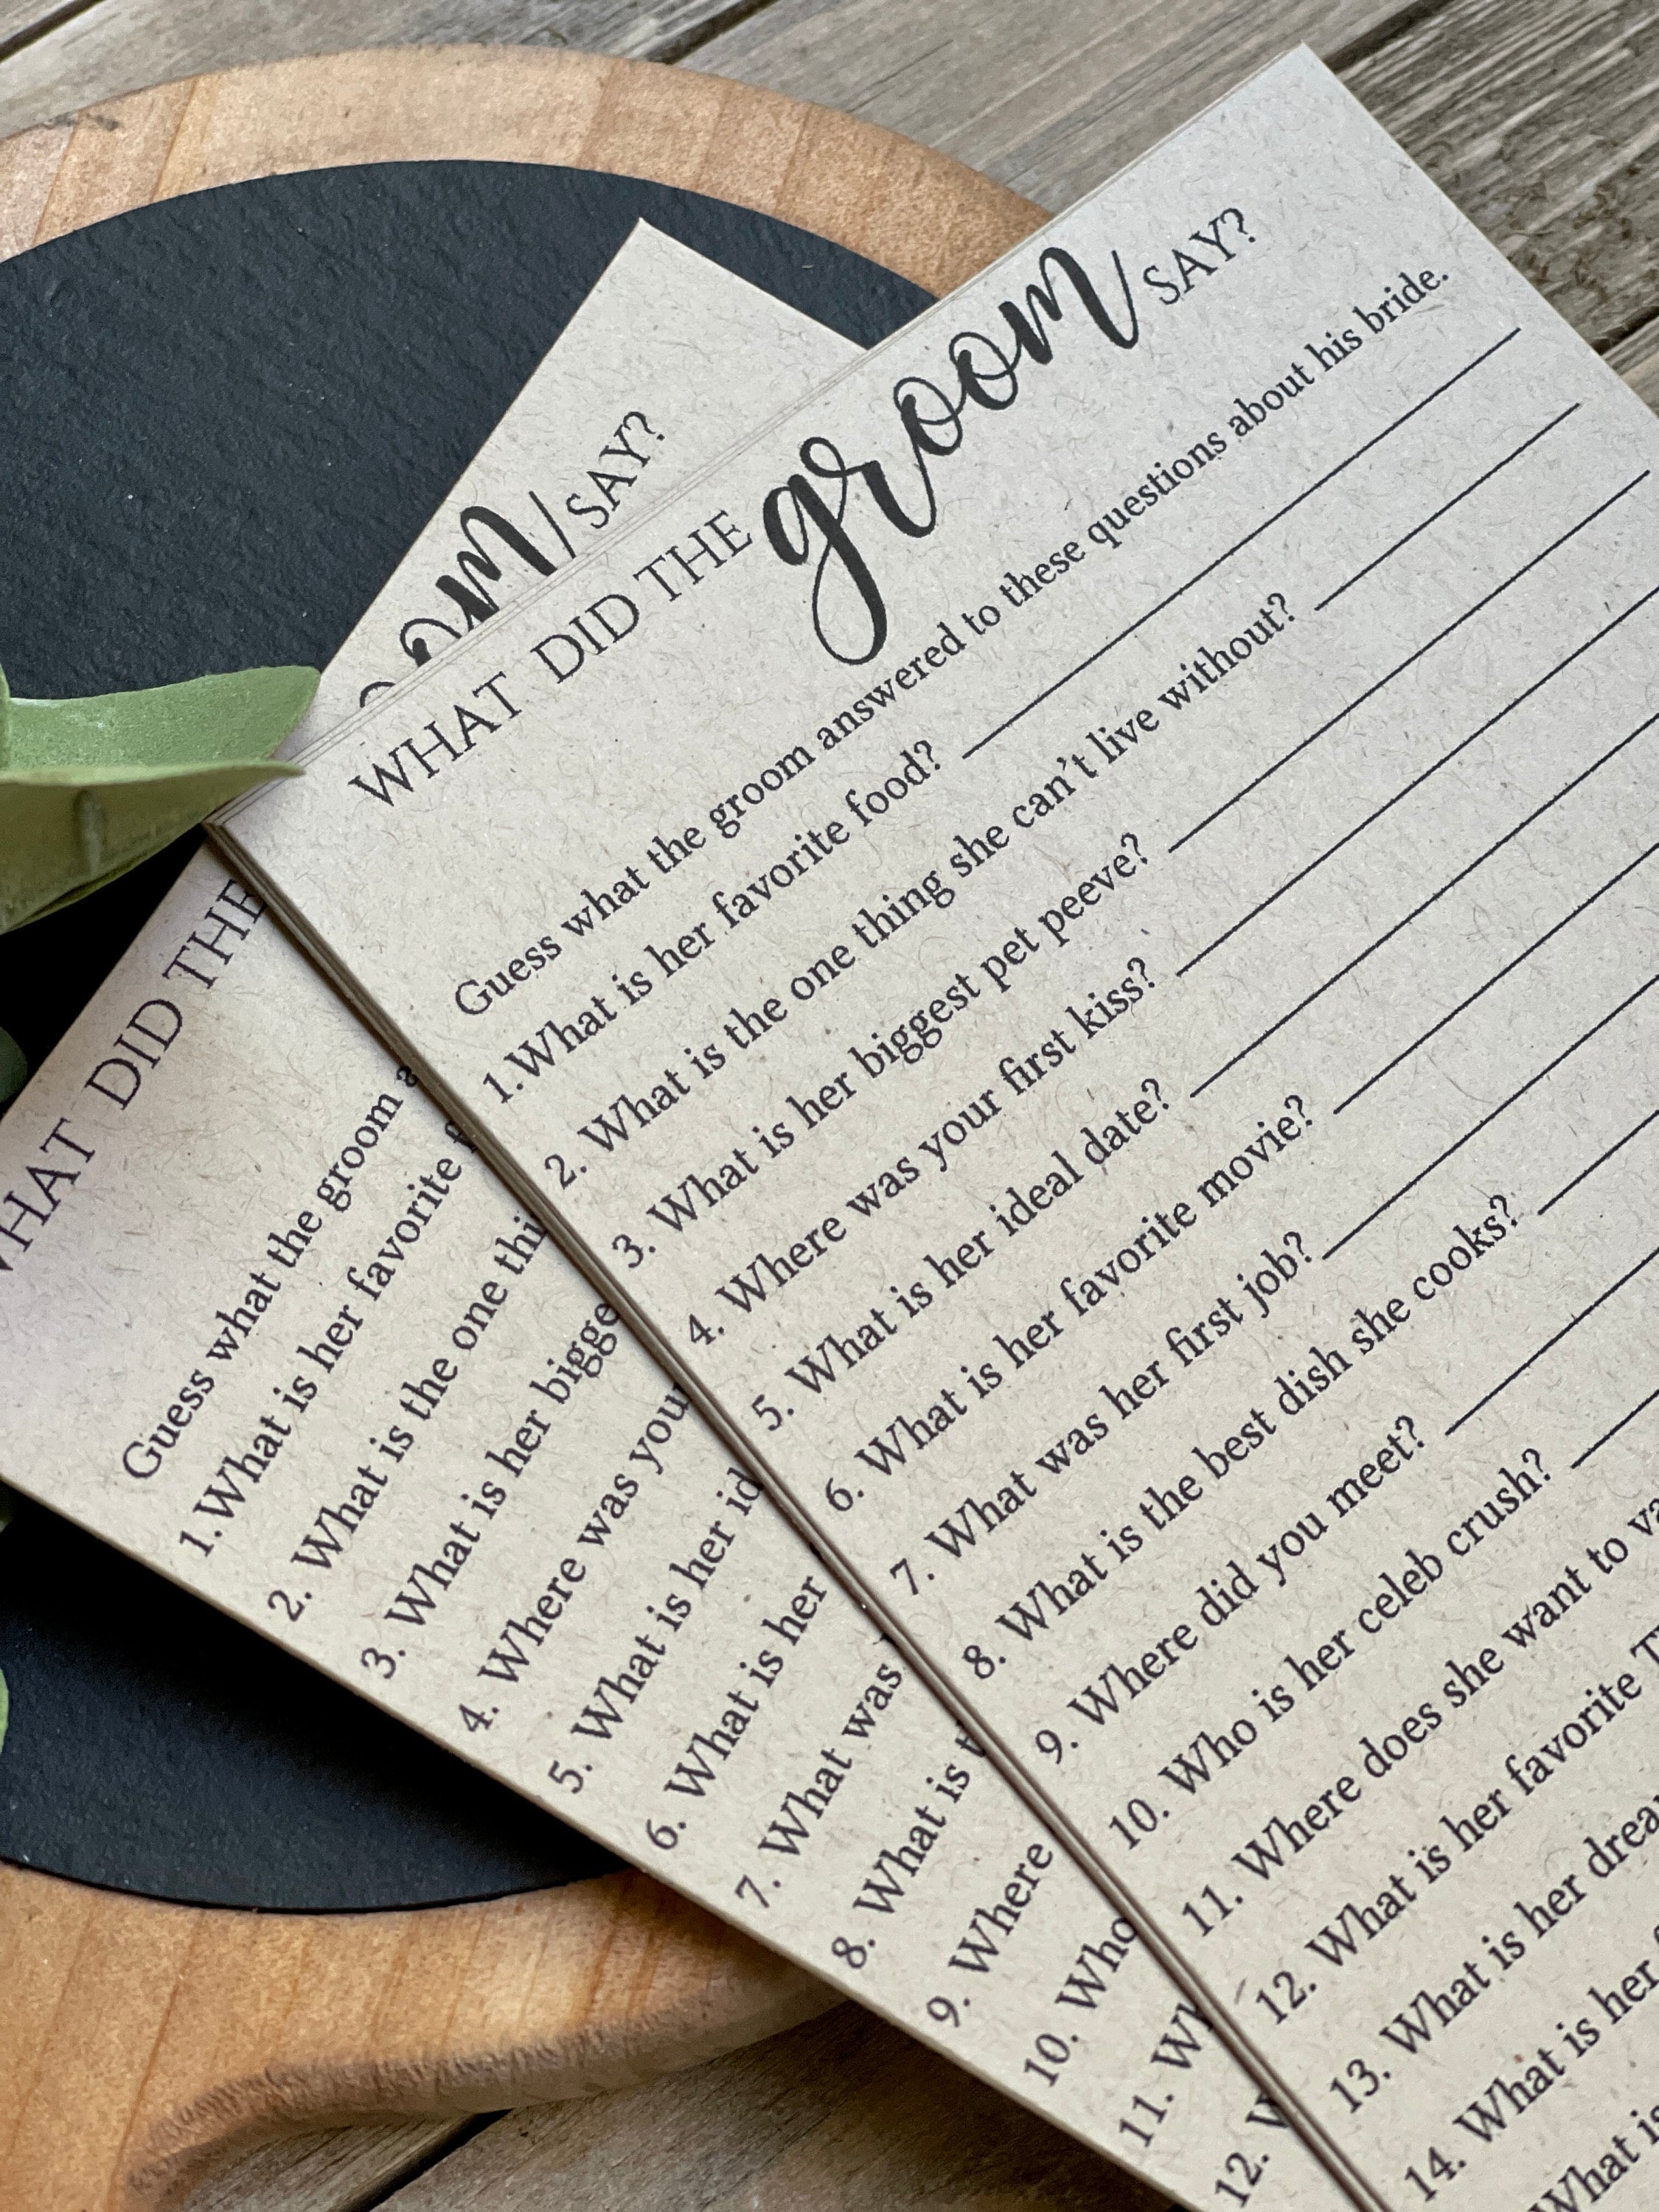 WHAT DID THE groom SAY?
Guess what the groom answered to these questions about his bride.
1.What is her favorite food?
2. What is the one thing she can't live without?
3. What is her biggest pet peeve?
4. Where was your first kiss?
5. What is her ideal date?
6. What is her favorite movie?
7. What was her first job?
8. What is the best dish she cooks?
9. Where did you meet?
10. Who is her celeb crush?
11. Where does she want to
12. What is her favorite
13. What is her
14. What is her
What is
SAY?
DID THE
Guess what the groom
1.What is her favorite
2. What is the one
3. What is her
4. Where was
5. What is her
6. What is her
7. What was
8. What is
9. Where
10. Who
11.
12.